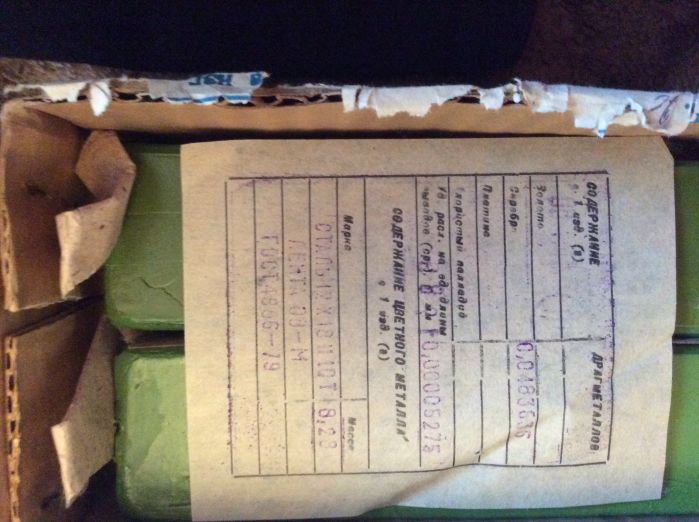 СОДЕРЖАНИЕ ДРАГМЕТАЛЛОВ
в 1 изд. (г)
Золото
Серебро 0,0483636
Платина
Хлористый палладий
Уд. расх. на ед. длины
выводов (г) мм 0,00005275
СОДЕРЖАНИЕ ЦВЕТНОГО МЕТАЛЛА
в 1 изд. (г)
Марка Масса
СТАЛЬ 12Х18Н10Т 8,23
ЛЕНТА 08-М
ГОСТ 4986-79